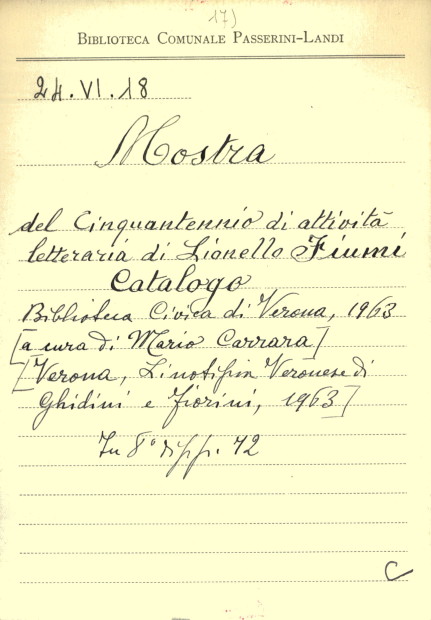 17)
BIBLIOTECA COMUNALE PASSERINI-LANDI
24.VI.18
Mostra
del Cinquantennio di attività
letteraria di Lionello Fiumi
Catalogo
Biblioteca Civica di Verona, 1963
[a cura di Mario Carrara]
[Verona, Linotipia Veronese di
Ghidini e Fiorini, 1963]
In 8° di pp. 72
C